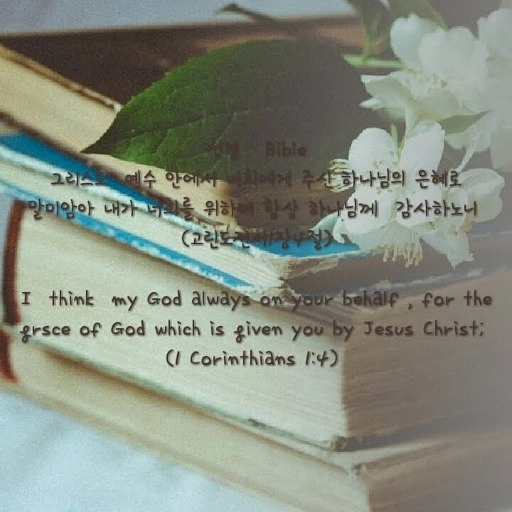 성경 Bible
그리스도 예수 안에서 너희에게 주신 하나님의 은혜로
말미암아 내가 너희를 위하여 항상 하나님께 감사하노니
(고린도전서1장4절)
I think my God always on your behalf , for the
grsce of God which is given you by Jesus Christ;
(1 Corinthians 1:4)